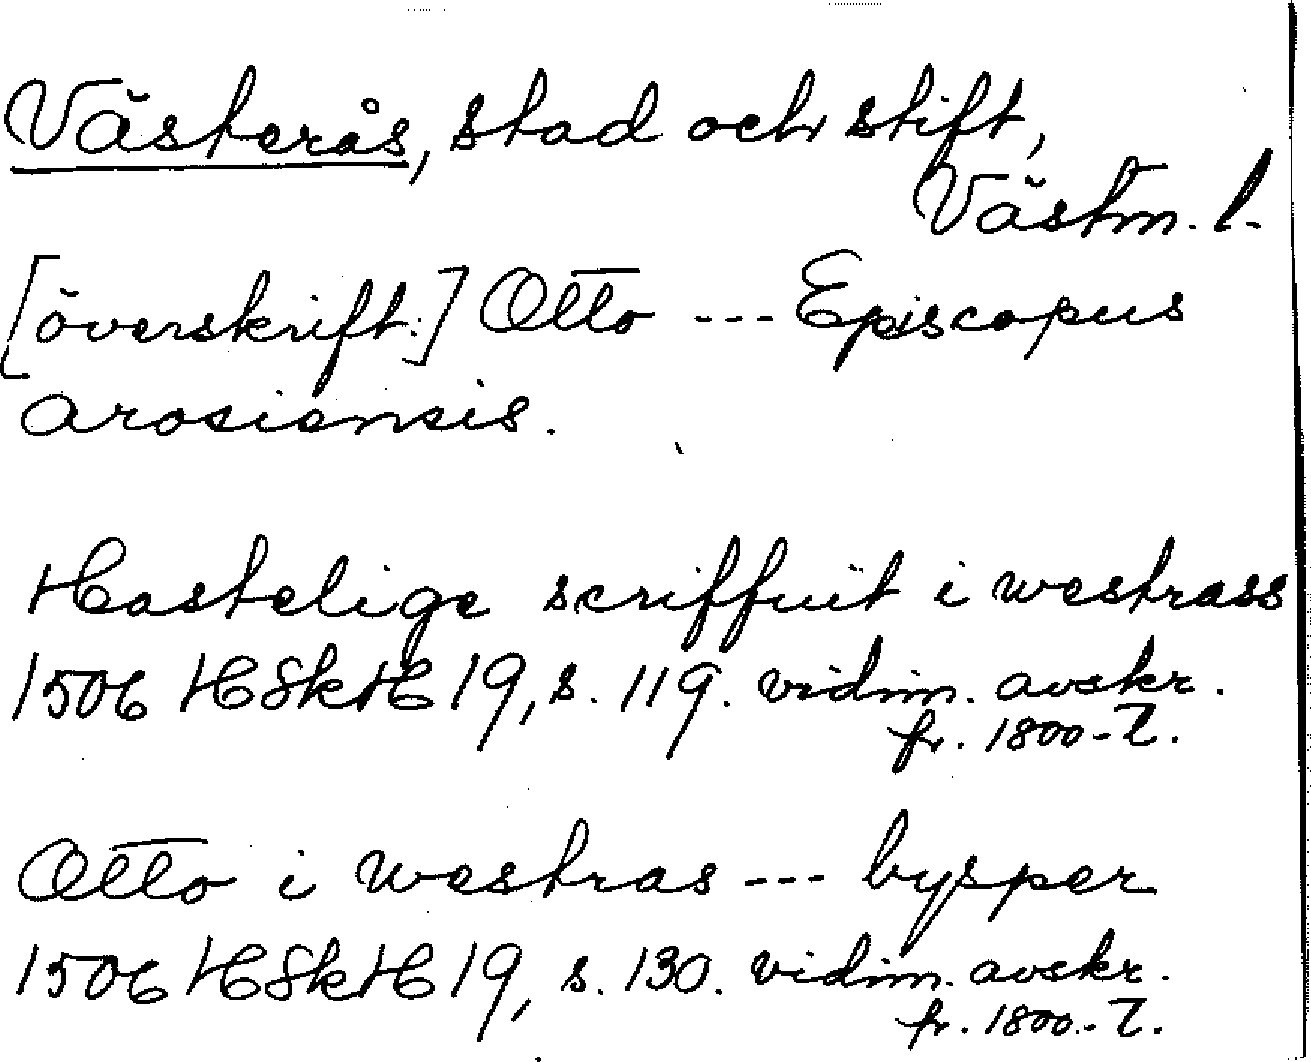 Västerås, stad och stift,
Västm. l.
[överskrift:] Otto --- Episcopus
arosiensis.
Hastelige scriffuit i westrass
1506 HSkH 19, s. 119. vidim. avskr.
fr. 1800-t.
Otto i westras --- bysper
1506 HSkH 19, s. 130. vidim. avskr.
fr. 1800.-t.